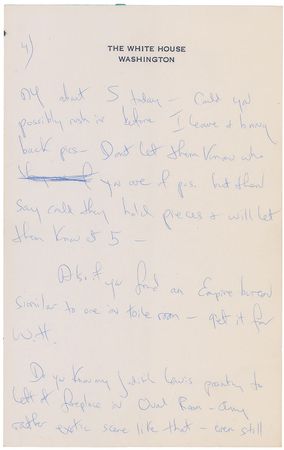 4)
THE WHITE HOUSE
WASHINGTON
about 5 today — Could you
possibly rush in before I leave & bring
back pics — Dont let them know who
you are if pos. but then
say could they hold pieces & will let
them know at 5 —
Also if you find an Empire bureau
similar to one in toile room — get it for
W.H.
Do you know my Judith Lewis painting to
left of fireplace in Oval Room — any
rather exotic scene like that — even still